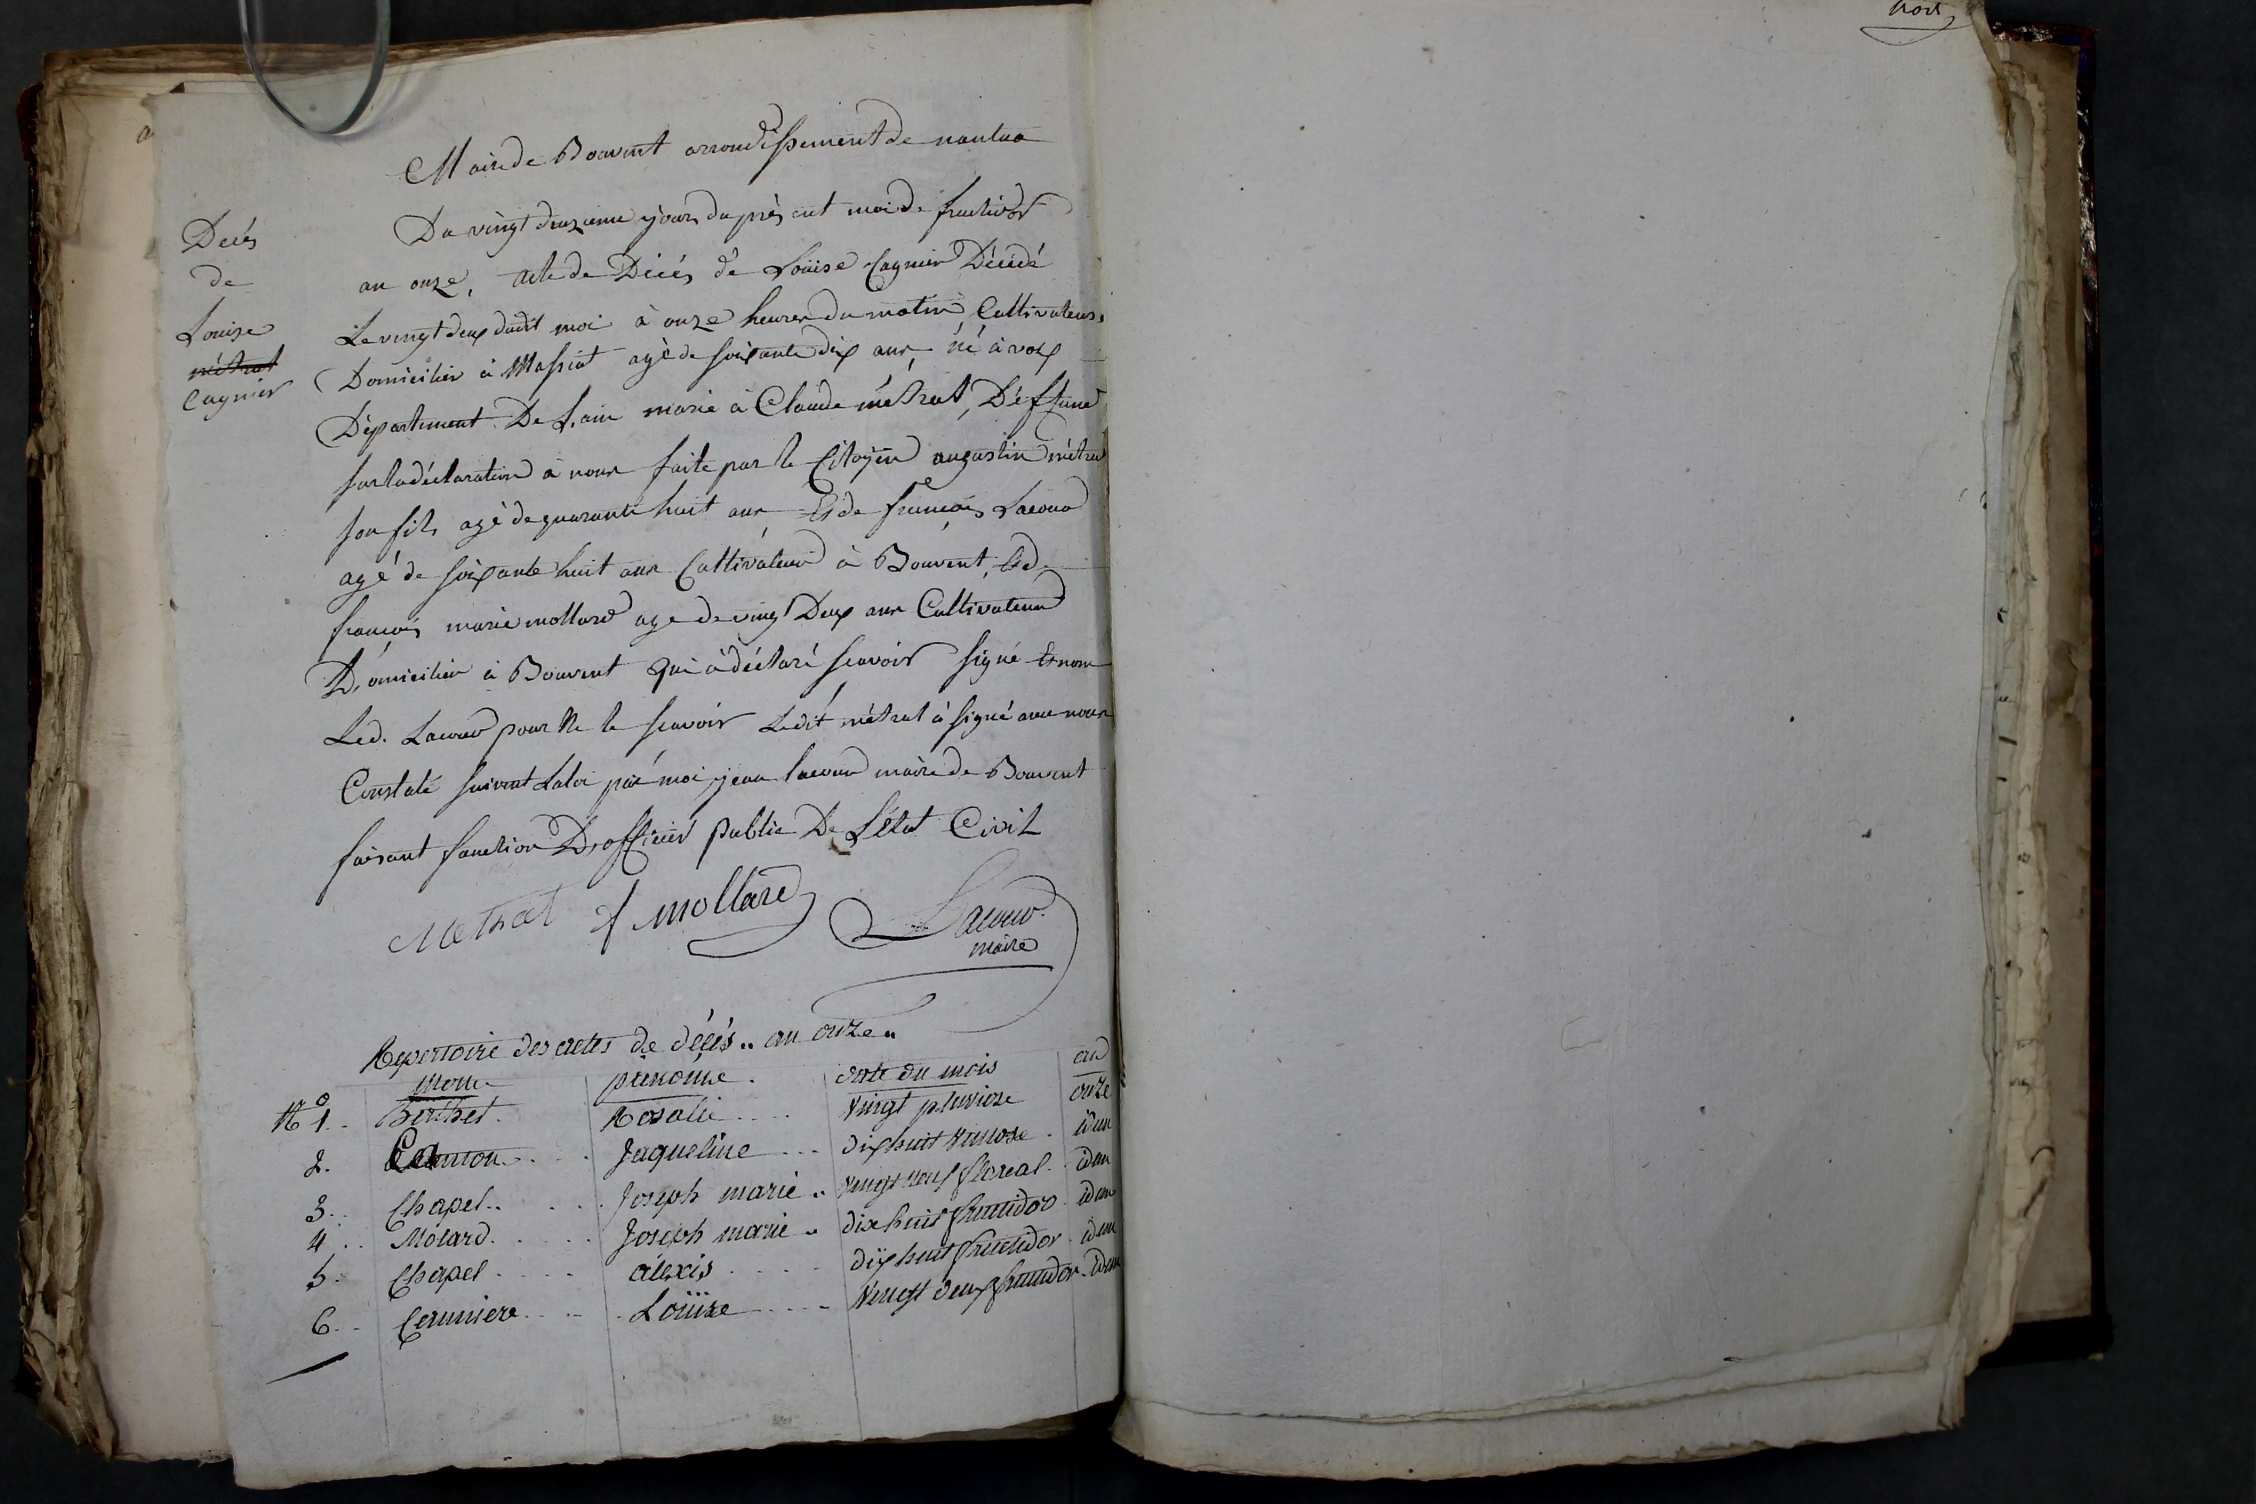 trois
Mairie de Bouvent arrondissement de nantua
Decès
de
Louise
métral
Cagnier
Du vingt deuxieme jour du présent moi de fructidor
an onze, acte de Décés dé Loüise Cagnier Décédé
Le vingt deux dudit moi à onze heures du matin, Cultivateur,
Domicilier à Massiat agé de soixante dix ans, né à volx
Département De Lain marié à Claude métral, Déffunt
sur la déclaration à nous faite par le Citoyen augustin métral
son fils agé de quarante huit ans Et de françois Lacour
agé de soixante huit ans Cultivateur à Bouvent, Et de
françois marie mollard age de vingt Deux ans Cultivateur
Domicilier à Bouvent qui à déclaré scavoir signé Et non
Led. Lacour pour ne le scavoir Ledit métral à signé avec nous
Constaté suivant La loi par moi jean lacour maire de Bouvent
faisant fonction D'officier public De L'état Civil
Metral f mollard Lacour
maire
Repertoire des actes de décés .. an onze ..
Nom prénome . date du mois an
N° 1. Berthet. Rosalie .... vingt pluviose onze
2. Cannon .... Jaqueline ... dixhuit vantose . idem
3. Chapel .. ... Joseph marie .. vingt neuf floreal . idem
4 .. Molard. .... Joseph marie .. dix huit fructidor . idem
5. Chapel .... alexis .... dix huit fructidor . idem
6.. Canniere .... Loüise .... vingt deux fructidor . idem